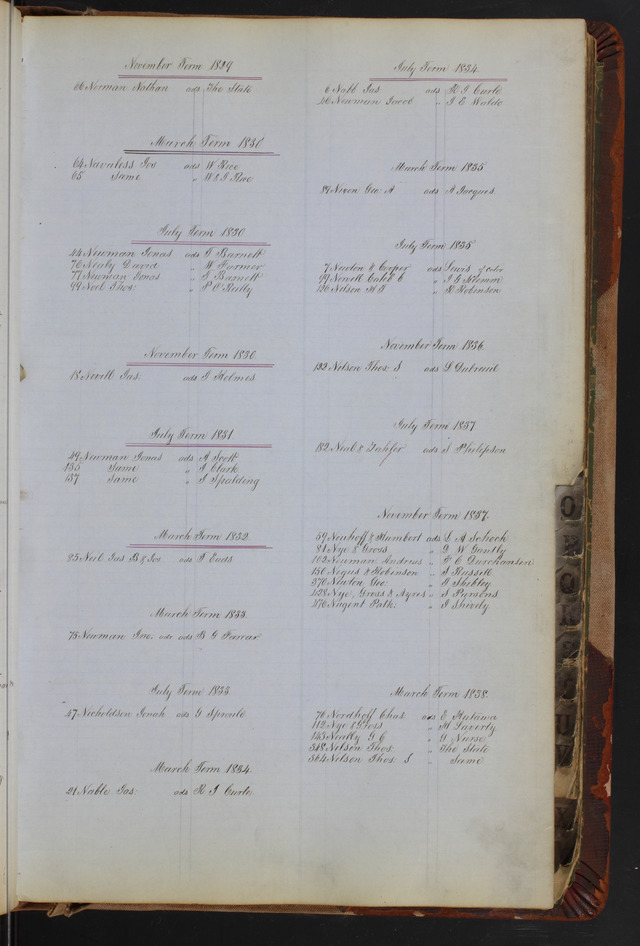 November Term 1829
66 Norman Nathan ads The State
March Term 1830
64 Navaless Jos ads W Rice
65 Same " W & J Rice
July Term 1830
44 Newman Jonas ads J Barnett
76 Nealy David " W Farmer
77 Newman Jonas " J Barnett
99 Noel Thos: " P O Reilly
November Term 1830.
18 Nevill Jas: ads J Holmes
July Term 1831
49 Newman Jonas ads A Scott
135 Same " J Clark
137 Same " J Spalding
March Term 1832
25 Neil Jas B & Jos ads J Eads
March Term 1833.
75 Newman Jno. adr ads B G Farrar
July Term 1833
47 Nicholdson Jonah ads G Sproule
March Term 1834.
21 Nable Jas: ads R J Curle
July Term 1834.
6 Nabb Jas ads R J Curle
46 Newman Jacob " J E Walde
March Term 1835
81 Niven Geo A ads A Jacques
July Term 1835
7 Newton & Cooper ads Lewis of color
99 Newell Caleb C " J G
120 Nelson H J " R Robinson
November Term 1836.
132 Nelson Thos: S ads S
July Term 1837.
182 Neal & ads S Philipson
November Term 1837.
59 Neuhoff & Humbert ads L A Schoch
81 Nye & Gross " D W Gantly
102 Newman Andrew "
156 Negus & Robinson " S Russell
370 Newton Geo: " A Shibley
428 Nye, Gross & Ayres " S Parsons
476 Nugent Patk: " J Shively
March Term 1838.
76 Nordhoff Chas ads E Hutawa
112 Nye & Gross " H Laverty
143 Neally G C " G Nurse
348 Nelson Thos: " The State
364 Nelson Thos: S " Same
O
P
Q
R
S
T
U
V
W
Y